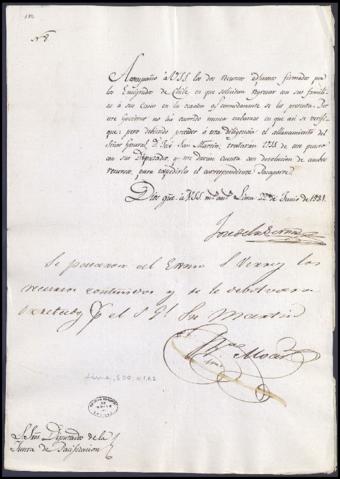 Acompaño à VSS los dos recursos adjuntos firmados por
los Emigrados de Chile en que solicitan regresar con sus familias
à sus Casas en la ocasion q.e comodamente se les presenta. Por
este Gobierno no ha havido nunca embarazo en que asi se verifique;
pero debiendo preceder à esta diligencia el allanamiento del
Señor General D. José San Martin, trataran VSS de este punto
con sus Diputados, y me daran cuenta con devolucion de ambos
recursos, para expedirles el correspondiente Pasaporte.
Dios gue. à VSS m.s a.s Lima 22 de Junio de 1821.
José de la Serna
Se pasaron al Exmo S. Virrey los
recursos contenidos y se le debolvieron
por el S. G.l San Martin
S. Sres Diputados de la
Junta de Pacificacion